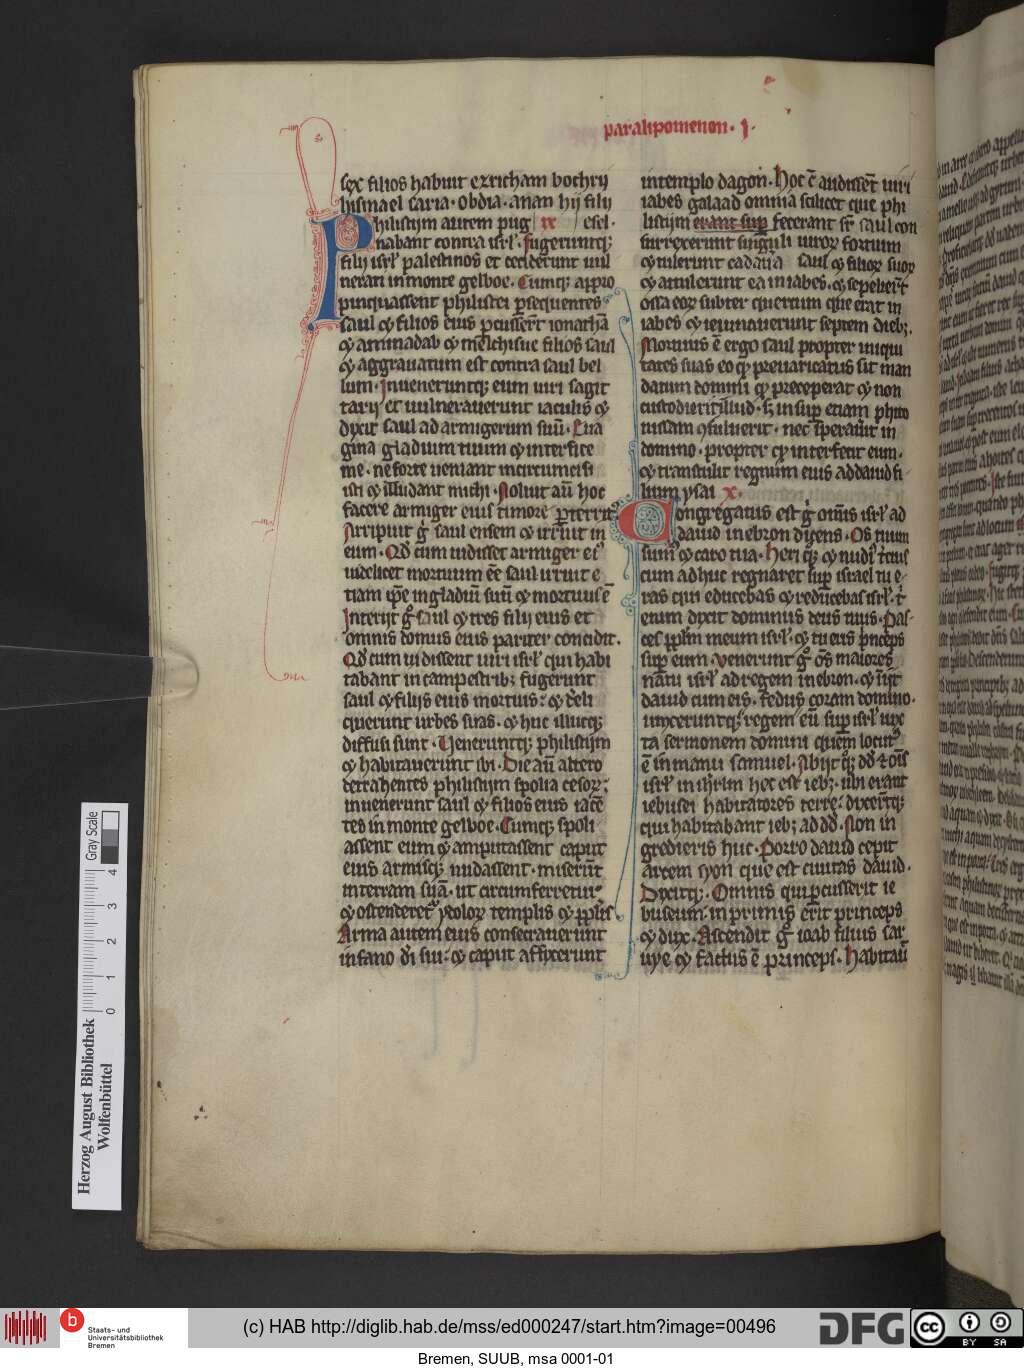 paralipomenon. I.
sex filios habuit ezricham bochru
hismael saria. obdia. anan hii filii
Philistiim autem pug ix esel.
nabant contra isrl. fugeruntq;
filii isrl palestinos et ceciderunt uul
nerati in monte gelboe. Cumq; appro
pinquassent philistei psequentes
saul et filios eius pcusserut ionatha
et aminadab et melchisue filios saul
et aggrauatum est contra saul bel
lum. Inueneruntq; eum uiri sagit
tarii et uulnerauerunt iaculis et
dixit saul ad armigerum suu. Eua
gina gladium tuum et interfice
me. ne forte ueniant incircumcisi
isti et illudant michi. Noluit au hoc
facere armiger eius timore pterrit
Arripuit g saul ensem et irruit in
eum. Qd cum uidisset armiger ei
uidelicet mortuum ee saul irruit e
tiam ipe in gladiu suu et mortuus e
Interiit g saul et tres filii eius et
omnis domus eius pariter concidit.
Qd cum uidissent uiri isrl qui habi
tabant in campestrib; fugerunt
saul et filiis eius mortuis. et deli
querunt urbes suas. et huc illucq;
diffusi sunt. Ueneruntq; philistiim
et habitauerunt ibi. Die au altero
detrahentes philistiim spolia cesor
inuenerunt saul et filios eius iace
tes in monte gelboe. Cumq; spoli
assent eum et amputassent caput
eius armisq; nudassent. miserut
in terram sua. ut circumferretur
et ostenderet ydolor templis et pplis
Arma autem eius consecrauerunt
in fano di sui. et caput affixerunt
in templo dagon. Hoc c audisset uiri
iabes galaad omnia scilicet que phi
listiim erant sup fecerant sr saul con
surrexerunt singuli uiror fortium
et tulerunt cadaua saul et filior suor
et attulerunt ea in iabes. et sepelierut
ossa eor subter quercum que erat in
iabes et ieiunauerunt septem dieb;
Mortuus e ergo saul propter iniqui
tates suas eo q preuaricatus sit man
datum domini q preceperat et non
custodierit illud. s insup etiam phito
nissam gsuluerit. nec sperauit in
domino. propter q interfecit eum.
et transtulit regnum eius ad dauid fi
lium ysai x.
Congregatus est g omis isrl ad
dauid in ebron dicens. Os tuum
sum et caro tua. Heri q et nudi tcius
cum adhuc regnaret sup israel tu e
ras qui educebas et reducebas isrl. t
enim dixit dominus deus tuus. Pas
ces pplm meum isrl. et tu eris pnceps
sup eum. Uenerunt g os maiores
natu isrl ad regem in ebron. et iniit
dauid cum eis. fedus coram domino.
unxeruntq; regem eu sup isrl iux
ta sermonem domini quem locut
e in manu samuel. Abiit q; dd et ois
isrl in ihrlm hec est ieb; ubi erant
iebusei habitatores terre. dixertq;
qui habitabant ieb; ad dd. Non in
gredieris huc. Porro dauid cepit
arcem syon que est ciuitas dauid.
Dixitq;. Omnis qui pcusserit ie
buseum in primis erit princeps
et dux. Ascendit g ioab filius sar
uye et factus e princeps. Habitau
Gray Scale
0 1 2 3 4
Herzog August Bibliothek
Wolfenbüttel
b
Staats- und
Universitätsbibliothek
Bremen
(c) HAB http://diglib.hab.de/mss/ed000247/start.htm?image=00496
DFG
cc BY SA
Bremen, SUUB, msa 0001-01